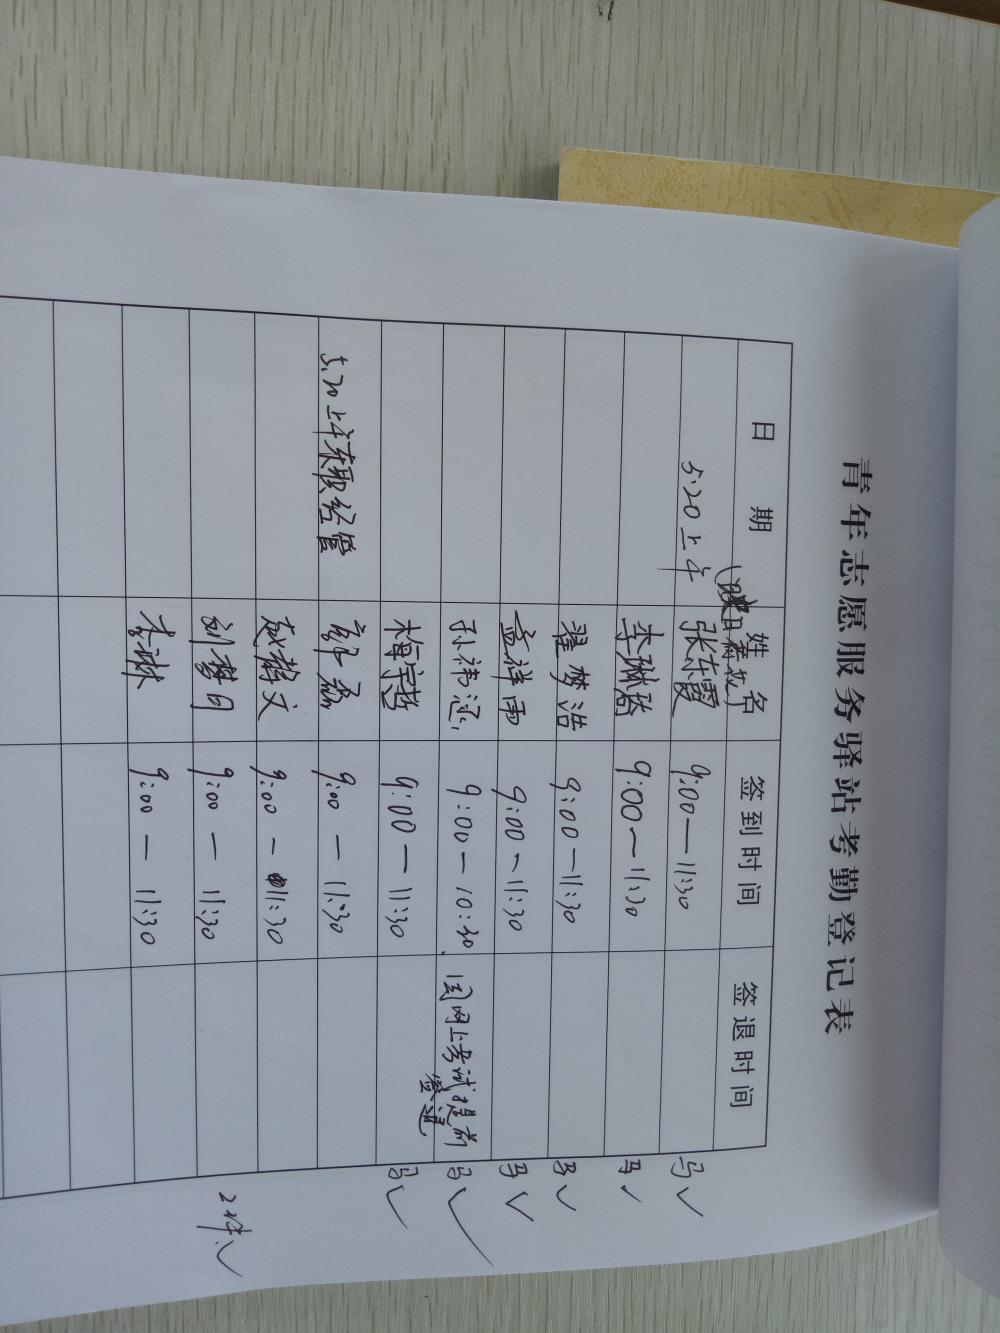 青年志愿服务驿站考勤登记表
日期 姓名 签到时间 签退时间
5.20上午 张东霞 9:00—11:30 马✓
李琳璐 9:00～11:30 马✓
翟梦浩 9:00—11:30 马✓
孟祥雨 9:00～11:30 马✓
孙祎涵 9:00—10:30. 因网上考试提前签退 马✓
梅宇哲 9:00—11:30 马✓
5.20上午东职经管 徐磊 9:00—11:30
赵静文 9:00—11:30
刘梦月 9:00—11:30
李琳 9:00—11:30